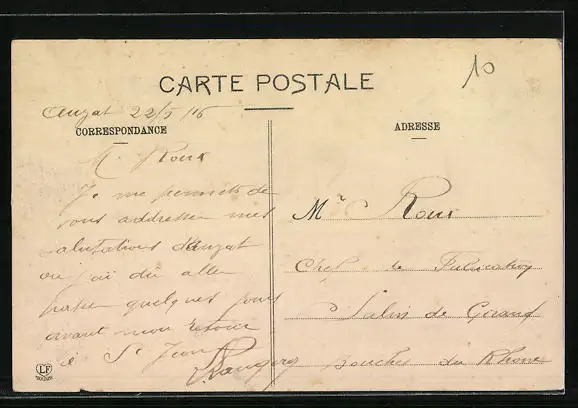 10
CARTE POSTALE
Auzat 22/5/16
CORRESPONDANCE
ADRESSE
M. Roux
Je me permets de
vous addresser mes
salutations d'Auzat
ou j'ai dû aller
passer quelques jours
avant mon retour
à St Jean
Mr Roux
Chef de Fabrication
Salin de Giraud
Bouches du Rhône
LF